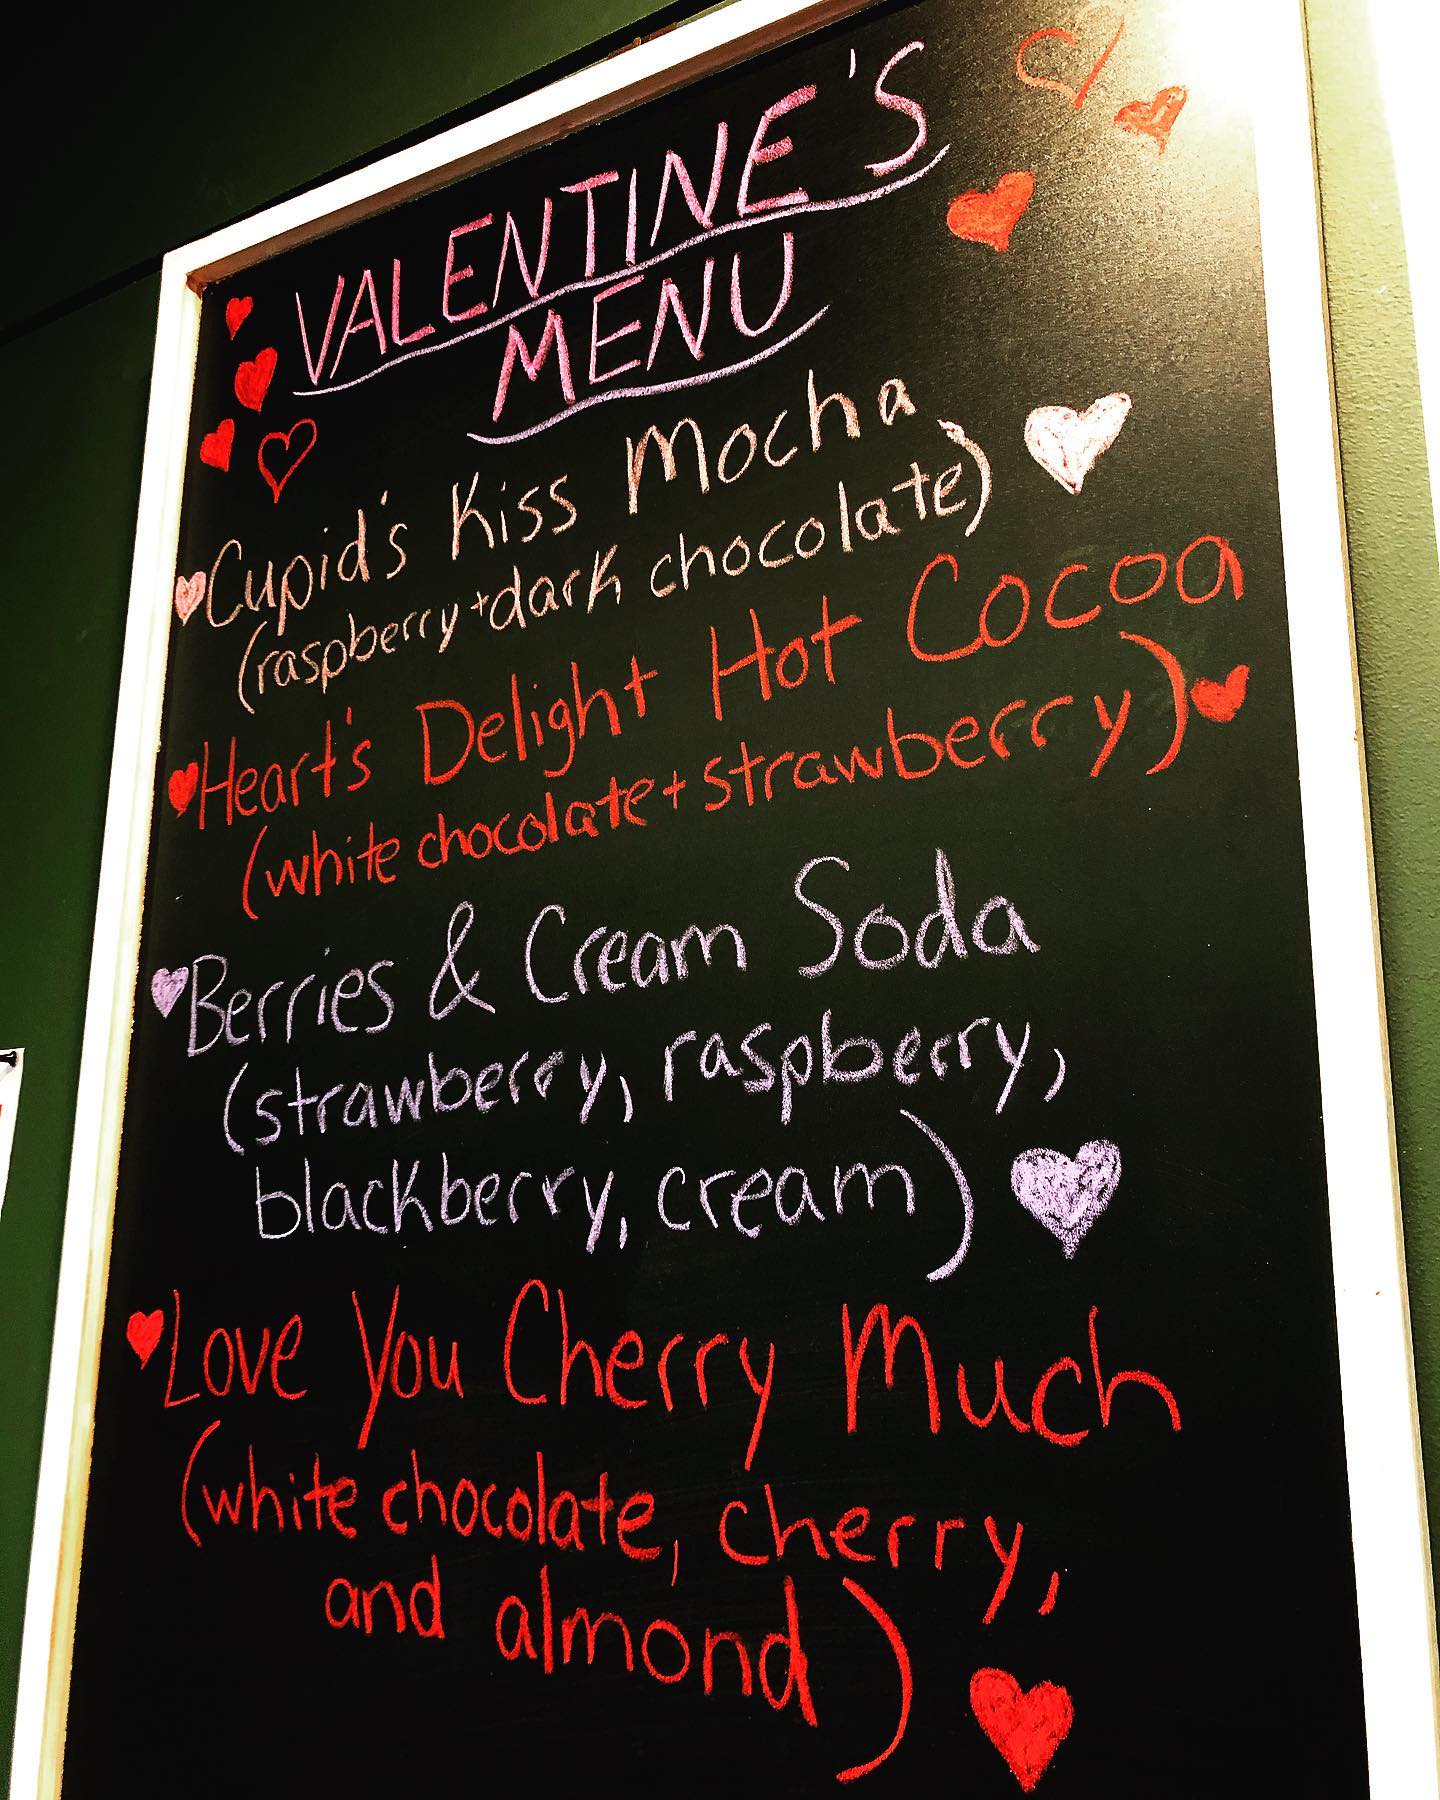 VALENTINE'S
MENU
Cupid's Kiss Mocha
(raspberry + dark chocolate)
Heart's Delight Hot Cocoa
(white chocolate + strawberry)
Berries & Cream Soda
(strawberry, raspberry,
blackberry, cream)
Love You Cherry Much
(white chocolate, cherry,
and almond)